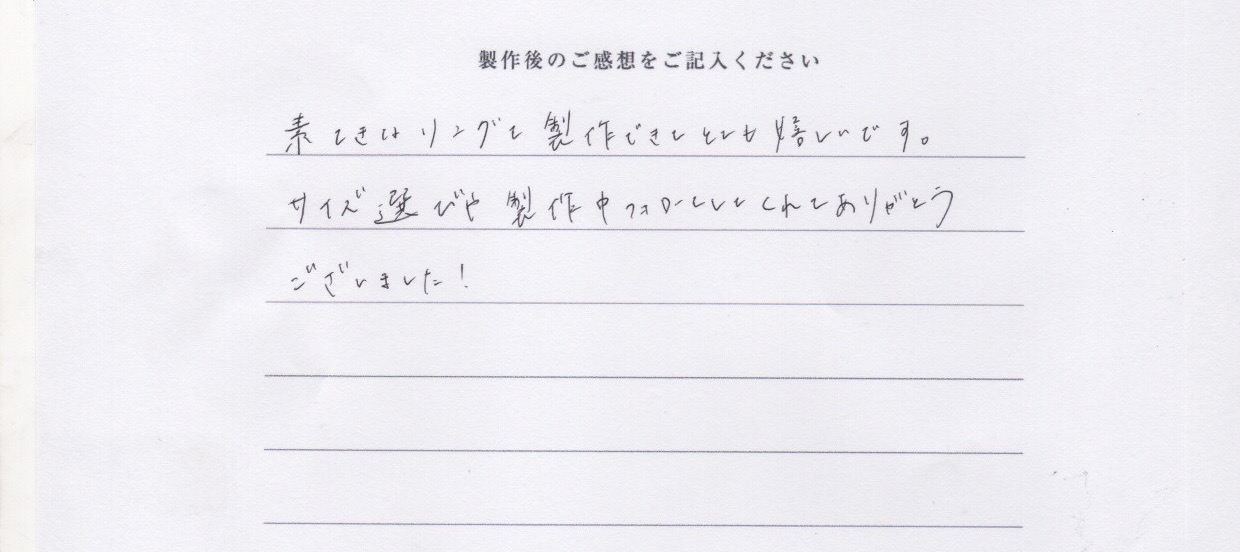 製作後のご感想をご記入ください
素てきなリングを製作できてとても嬉しいです。
サイズ選びや製作中フォローをしてくれてありがとう
ございました!